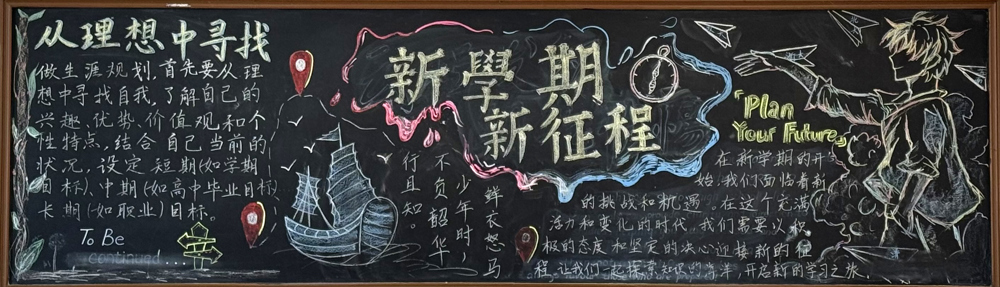 从理想中寻找
做生涯规划,首先要从理
想中寻找自我,了解自己的
兴趣、优势、价值观和个
性特点,结合自己当前的
状况,设定短期(如学期
目标)、中期(如高中毕业目标)
长期(如职业)目标。
To Be
continued...
新學期
新征程
鲜衣怒马
少年时,
不负韶华
行且知。
「Plan
Your Future」
在新学期的开
始,我们面临着新
的挑战和机遇。在这个充满
活力和变化的时代,我们需要以积
极的态度和坚定的决心迎接新的征
程,让我们一起探索知识的海洋,开启新的学习之旅。